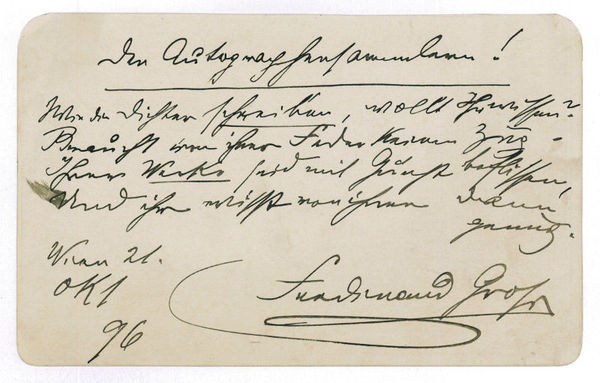 Den Autographensammlern!
Wie die Dichter schreiben, wollt Ihr wissen?
Braucht von ihrer Feder keinen Zug –
Ihren Werken seid mit Gunst beflissen,
Und ihr wisst von ihnen dann
genug.
Wien 21.
Okt
96
Ferdinand Groß